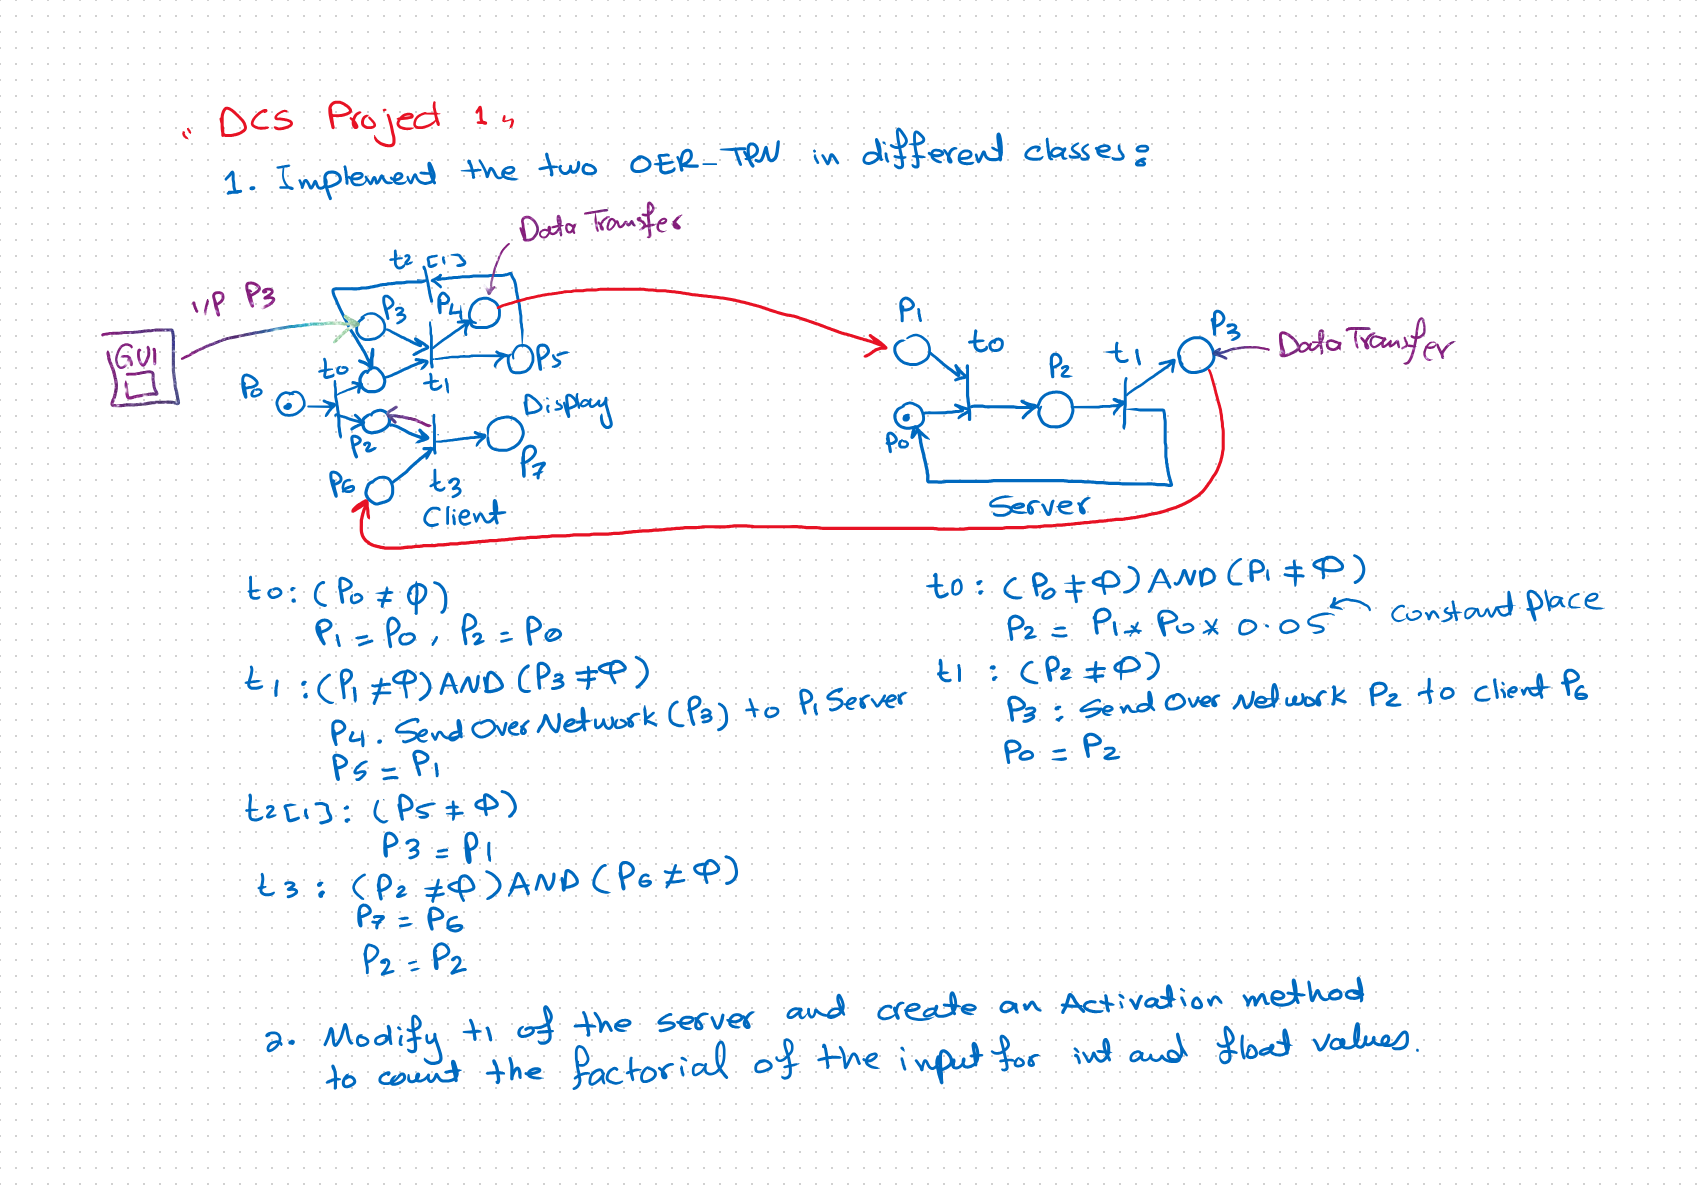 "DCS Project 1"
1. Implement the two OER-TPN in different classes:
Data Transfer
t2 [1]
I/P P3
P3
P4
P1
P3
GUI
t0
t0
t1
Data Transfer
P0
t1
P5
P2
P2
Display
P0
P6
t3
P7
Client
Server
t0: (P0 ≠ Φ)
P1 = P0, P2 = P0
t1: (P1 ≠ Φ) AND (P3 ≠ Φ)
P4. Send Over Network (P3) to P1 Server
P5 = P1
t2[1]: (P5 ≠ Φ)
P3 = P1
t3: (P2 ≠ Φ) AND (P6 ≠ Φ)
P7 = P6
P2 = P2
t0: (P0 ≠ Φ) AND (P1 ≠ Φ)
P2 = P1 * P0 * 0.05 constant Place
t1: (P2 ≠ Φ)
P3: Send Over Network P2 to client P6
P0 = P2
2. Modify t1 of the server and create an Activation method
to count the factorial of the input for int and float values.